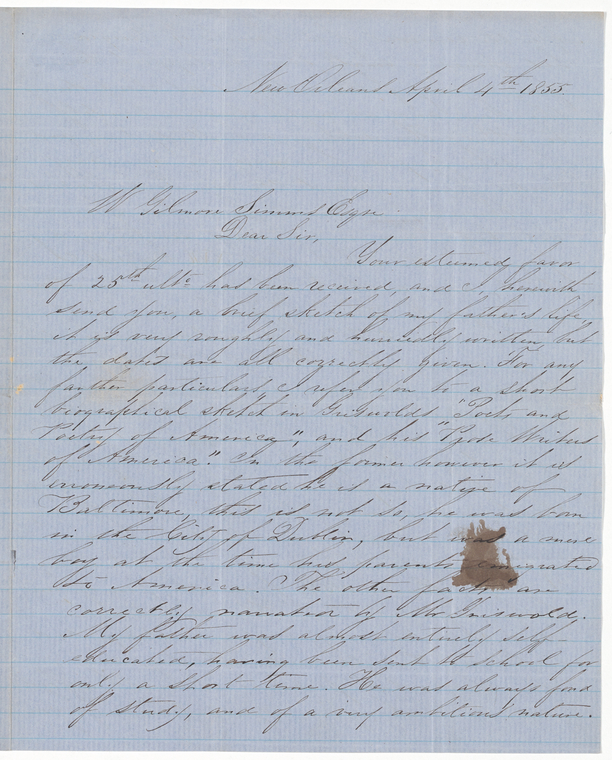 New Orleans April 4th 1855.
W Gilmore Simms Esqre
Dear Sir,
Your esteemed favor
of 25th ulto has been received, and I herewith
send you, a brief sketch of my father's life,
it is very roughly and hurriedly written but
the dates are all correctly given. For any
farther particulars I refer you to a short
biographical sketch in Griswolds "Poets and
Poetry of America", and his "Prose Writers
of America". In the former however it is
erroneously stated he is a native of
Baltimore, this is not so, he was born
in the City of Dublin, but was a mere
boy at the time his parents emigrated
to America. The other facts are
correctly narrated by Mr Griswold.
My father was almost entirely self
educated, having been sent to school for
only a short time. He was always fond
of study, and of a very ambitious nature.